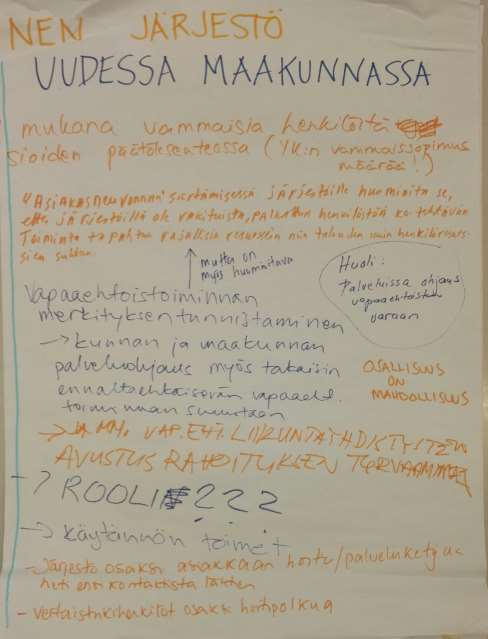 NEN JÄRJESTÖ
UUDESSA MAAKUNNASSA
mukana vammaisia henkilöitä
sioiden päätöksenteossa (YK:n vammaissopimus
määrää!)
"Asiakasneuvonnan" siirtämisessä järjestöille huomioita se,
ettei järjestöillä ole vakituista, palkattua henkilöstöä ko. tehtävän
Toiminta tapahtuu rajallisin resurssein niin talouden kuin henkilöresurs-
sien suhteen.
mutta on
myös huomioitava
Huoli:
Palveluissa ohjaus
vapaaehtoisten
varaan
Vapaaehtoistoiminnan
merkityksen tunnistaminen
→ kunnan ja maakunnan
palveluohjaus myös takaisin
ennaltaehkäisevän vapaaeht.
toiminnan suuntaan
OSALLISUUS
ON
MAHDOLLISUUS
→ JA MM. VAP.EHT. LIIKUNTAYHDISTYSTEN
AVUSTUS RAHOITUKSEN TURVAAMINEN
→ ROOLI ???
→ käytännön toimet
- Järjestö osaksi asiakkaan hoito/palveluketjua
heti ensi kontaktista lähtien
- Vertaistukihenkilöt osaksi hoitopolkua